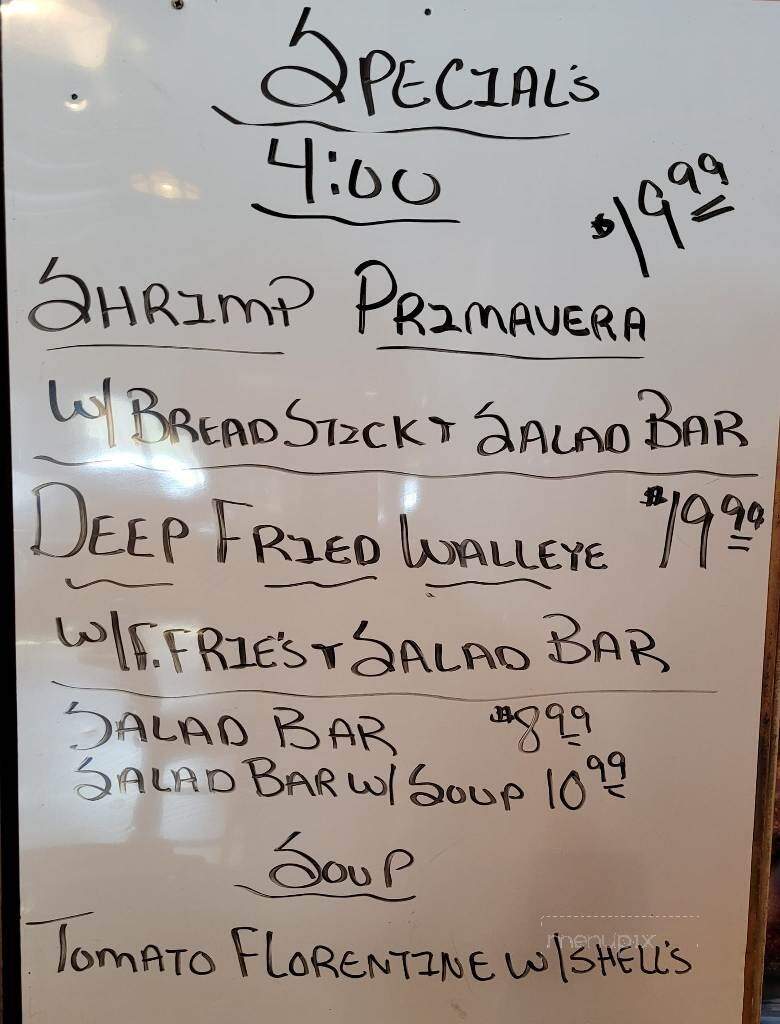 SPECIAL'S
4:00
$19.99
SHRIMP PRIMAVERA
W/ BREAD STICK + SALAD BAR
DEEP FRIED WALLEYE $19.99
W/F. FRIE'S + SALAD BAR
SALAD BAR $8.99
SALAD BAR W/ SOUP 10.99
SOUP
TOMATO FLORENTINE W/SHELL'S
menupix